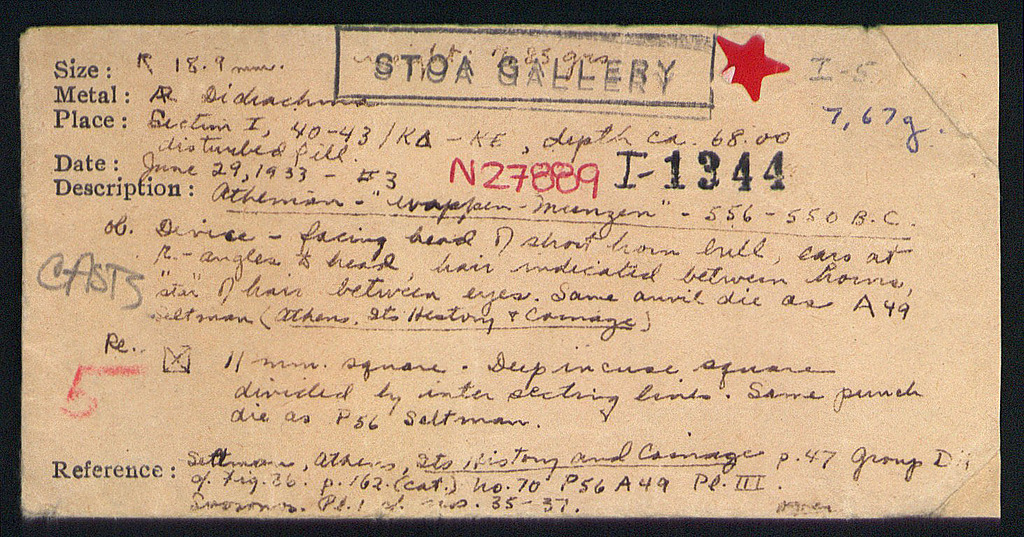 Size : 18.9 mm.
STOA GALLERY
I-5
Metal : AR Didrachma
7,67g.
Place : Section I, 40-43/ΚΔ - ΚΕ, depth ca. 68.00
disturbed fill.
Date : June 29, 1933 - #3
N27889 I-1344
Description : Athenian - "Wappen-Munzen" - 556-550 B.C.
ob. Device - facing head of short horn bull, ears at
R.-angles to head, hair indicated between horns,
"star" of hair between eyes. Same anvil die as A49
CASTS
Seltman (Athens, Its History & Coinage)
Re.. 11 mm. square. Deep incuse square
divided by intersecting lines. Same punch
die as P56 Seltman.
5
Reference : Seltman, Athens, Its History and Coinage p.47 Group D
cf. Fig. 36. p. 162. (cat.) no. 70 P56 A49 Pl. III.
Svoronos. Pl. 1 cf. nos. 35-37.
over